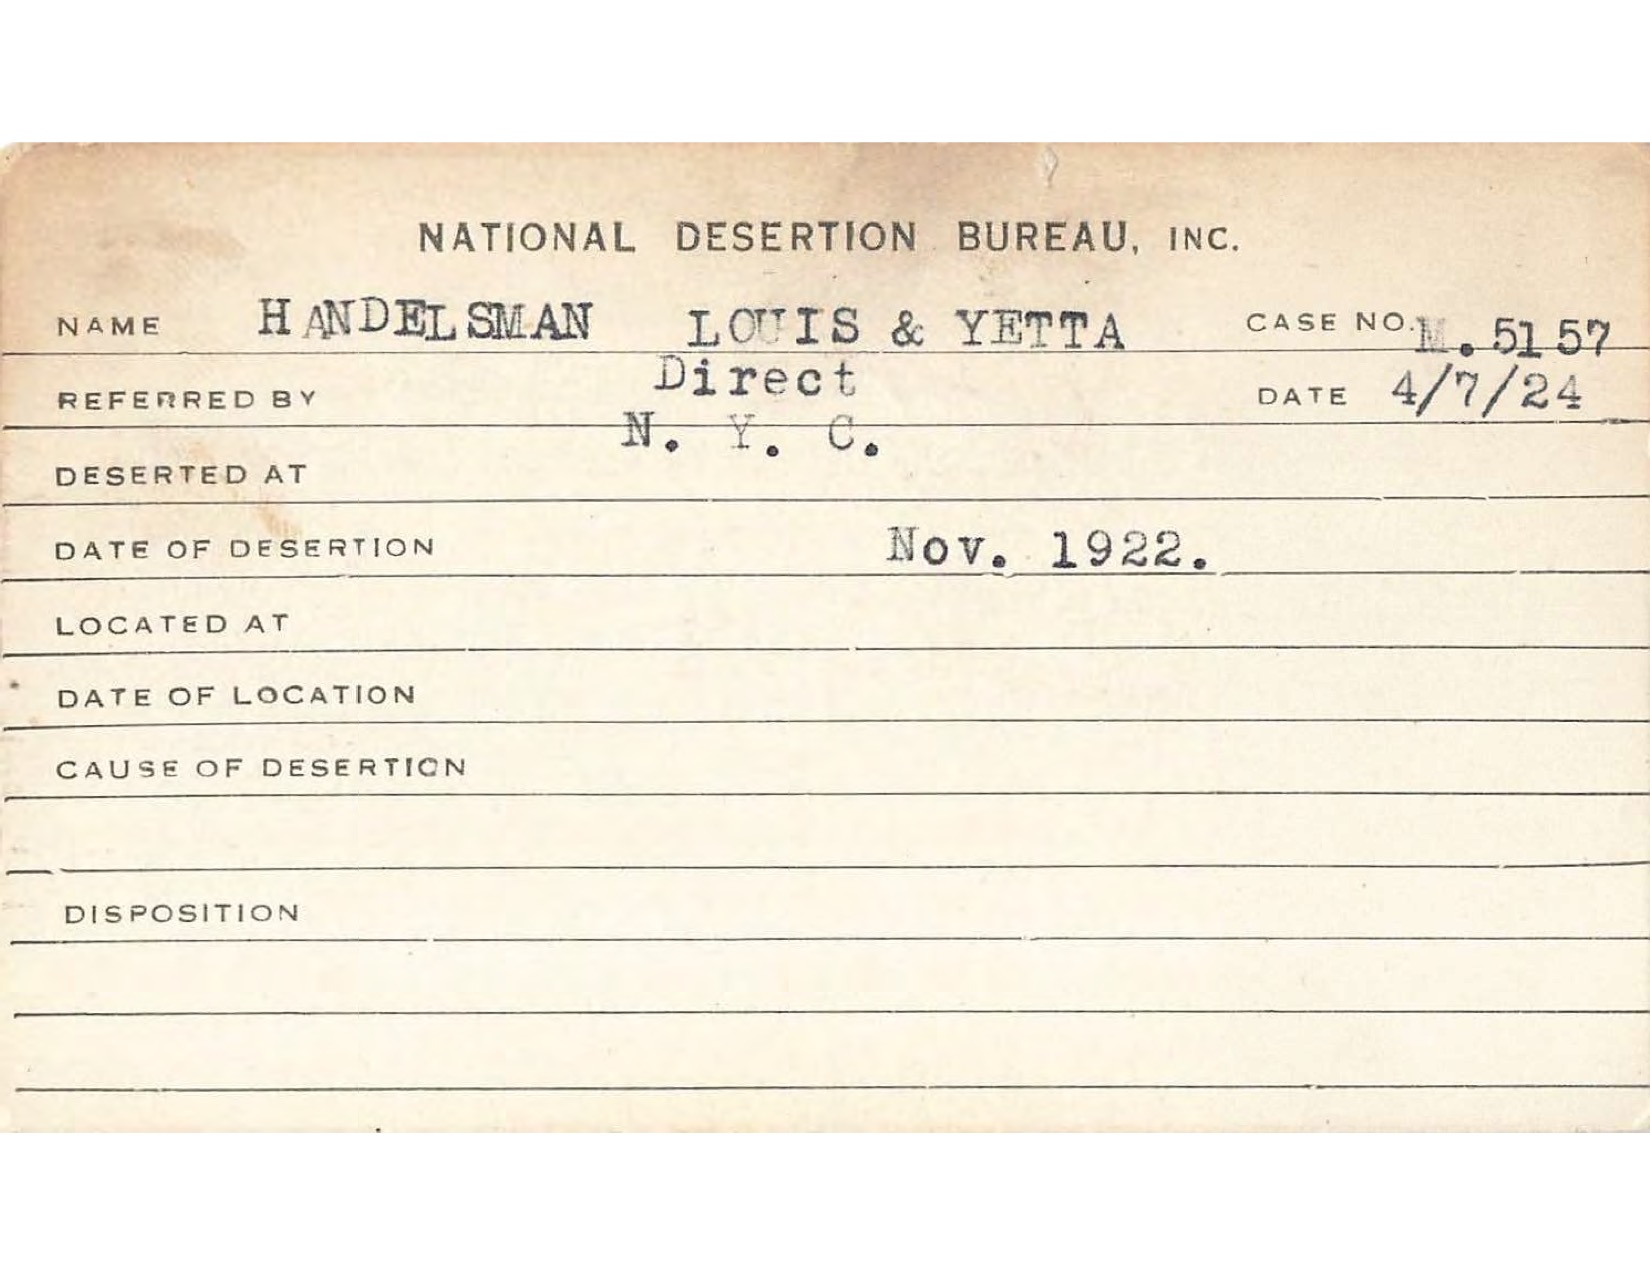 NATIONAL DESERTION BUREAU, INC.
NAME HANDELSMAN LOUIS & YETTA CASE NO. M.5157
REFERRED BY Direct DATE 4/7/24
DESERTED AT N. Y. C.
DATE OF DESERTION Nov. 1922.
LOCATED AT
DATE OF LOCATION
CAUSE OF DESERTION
DISPOSITION